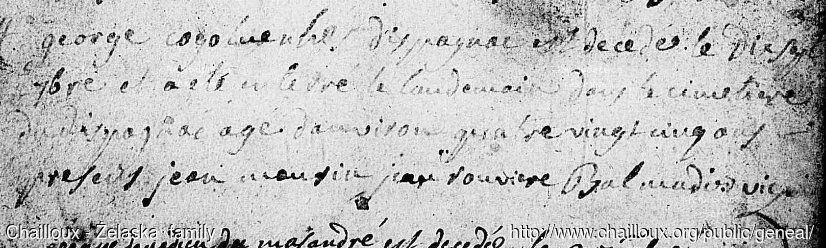 george cogoluenhe d'ispagnac est decedé le dix sep
7bre et a eté enterré le landemain dans le cimetiere
du d ispagnac agé d'anviron quatre vingt cinq ans
presents jean mourin jean rouviere Balmadier vic
Chailloux - Zelaska family http://www.chailloux.org/public/geneal/
du masandré est decedé le